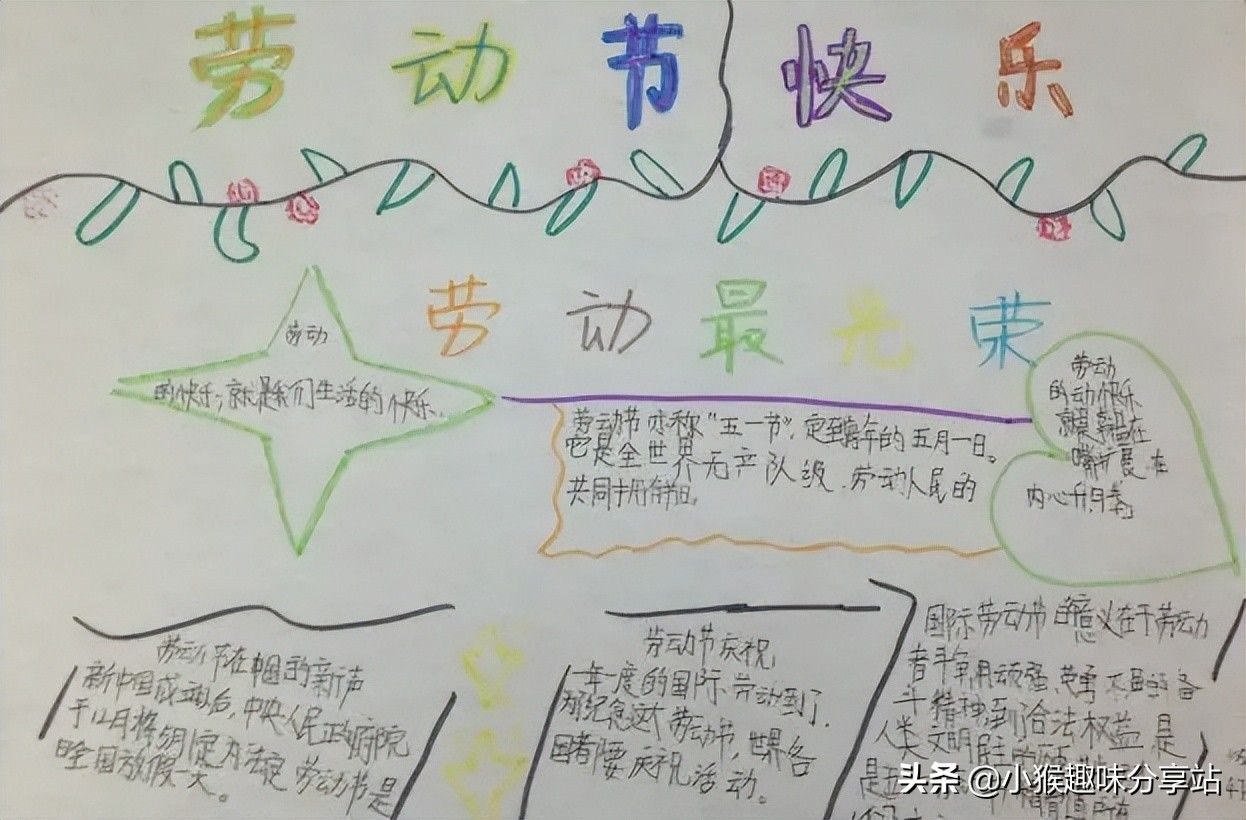 劳动节快乐
劳动最光荣
劳动
的快乐,就是我们生活的快乐.
劳动节亦称“五一节”,定到每年的五月一日。
它是全世界无产队级、劳动人民的
共同拥有节日
劳动
的动快乐
就是
在
嘴扩展、在
内心升
劳动节在中国的新声
新中国成立后,中央人民政府院
于12月将 定为法定 劳动节是
日全国放假一天。
劳动节庆祝,
一年一度的国际劳动到了,
为纪念这个劳动节,世界各
国者都要庆祝活动。
国际劳动节的意义在于劳动
者斗争,用顽强、英勇不
斗精神,到了合法权益,是
人类文明民主的
是
头条 @小猴趣味分享站